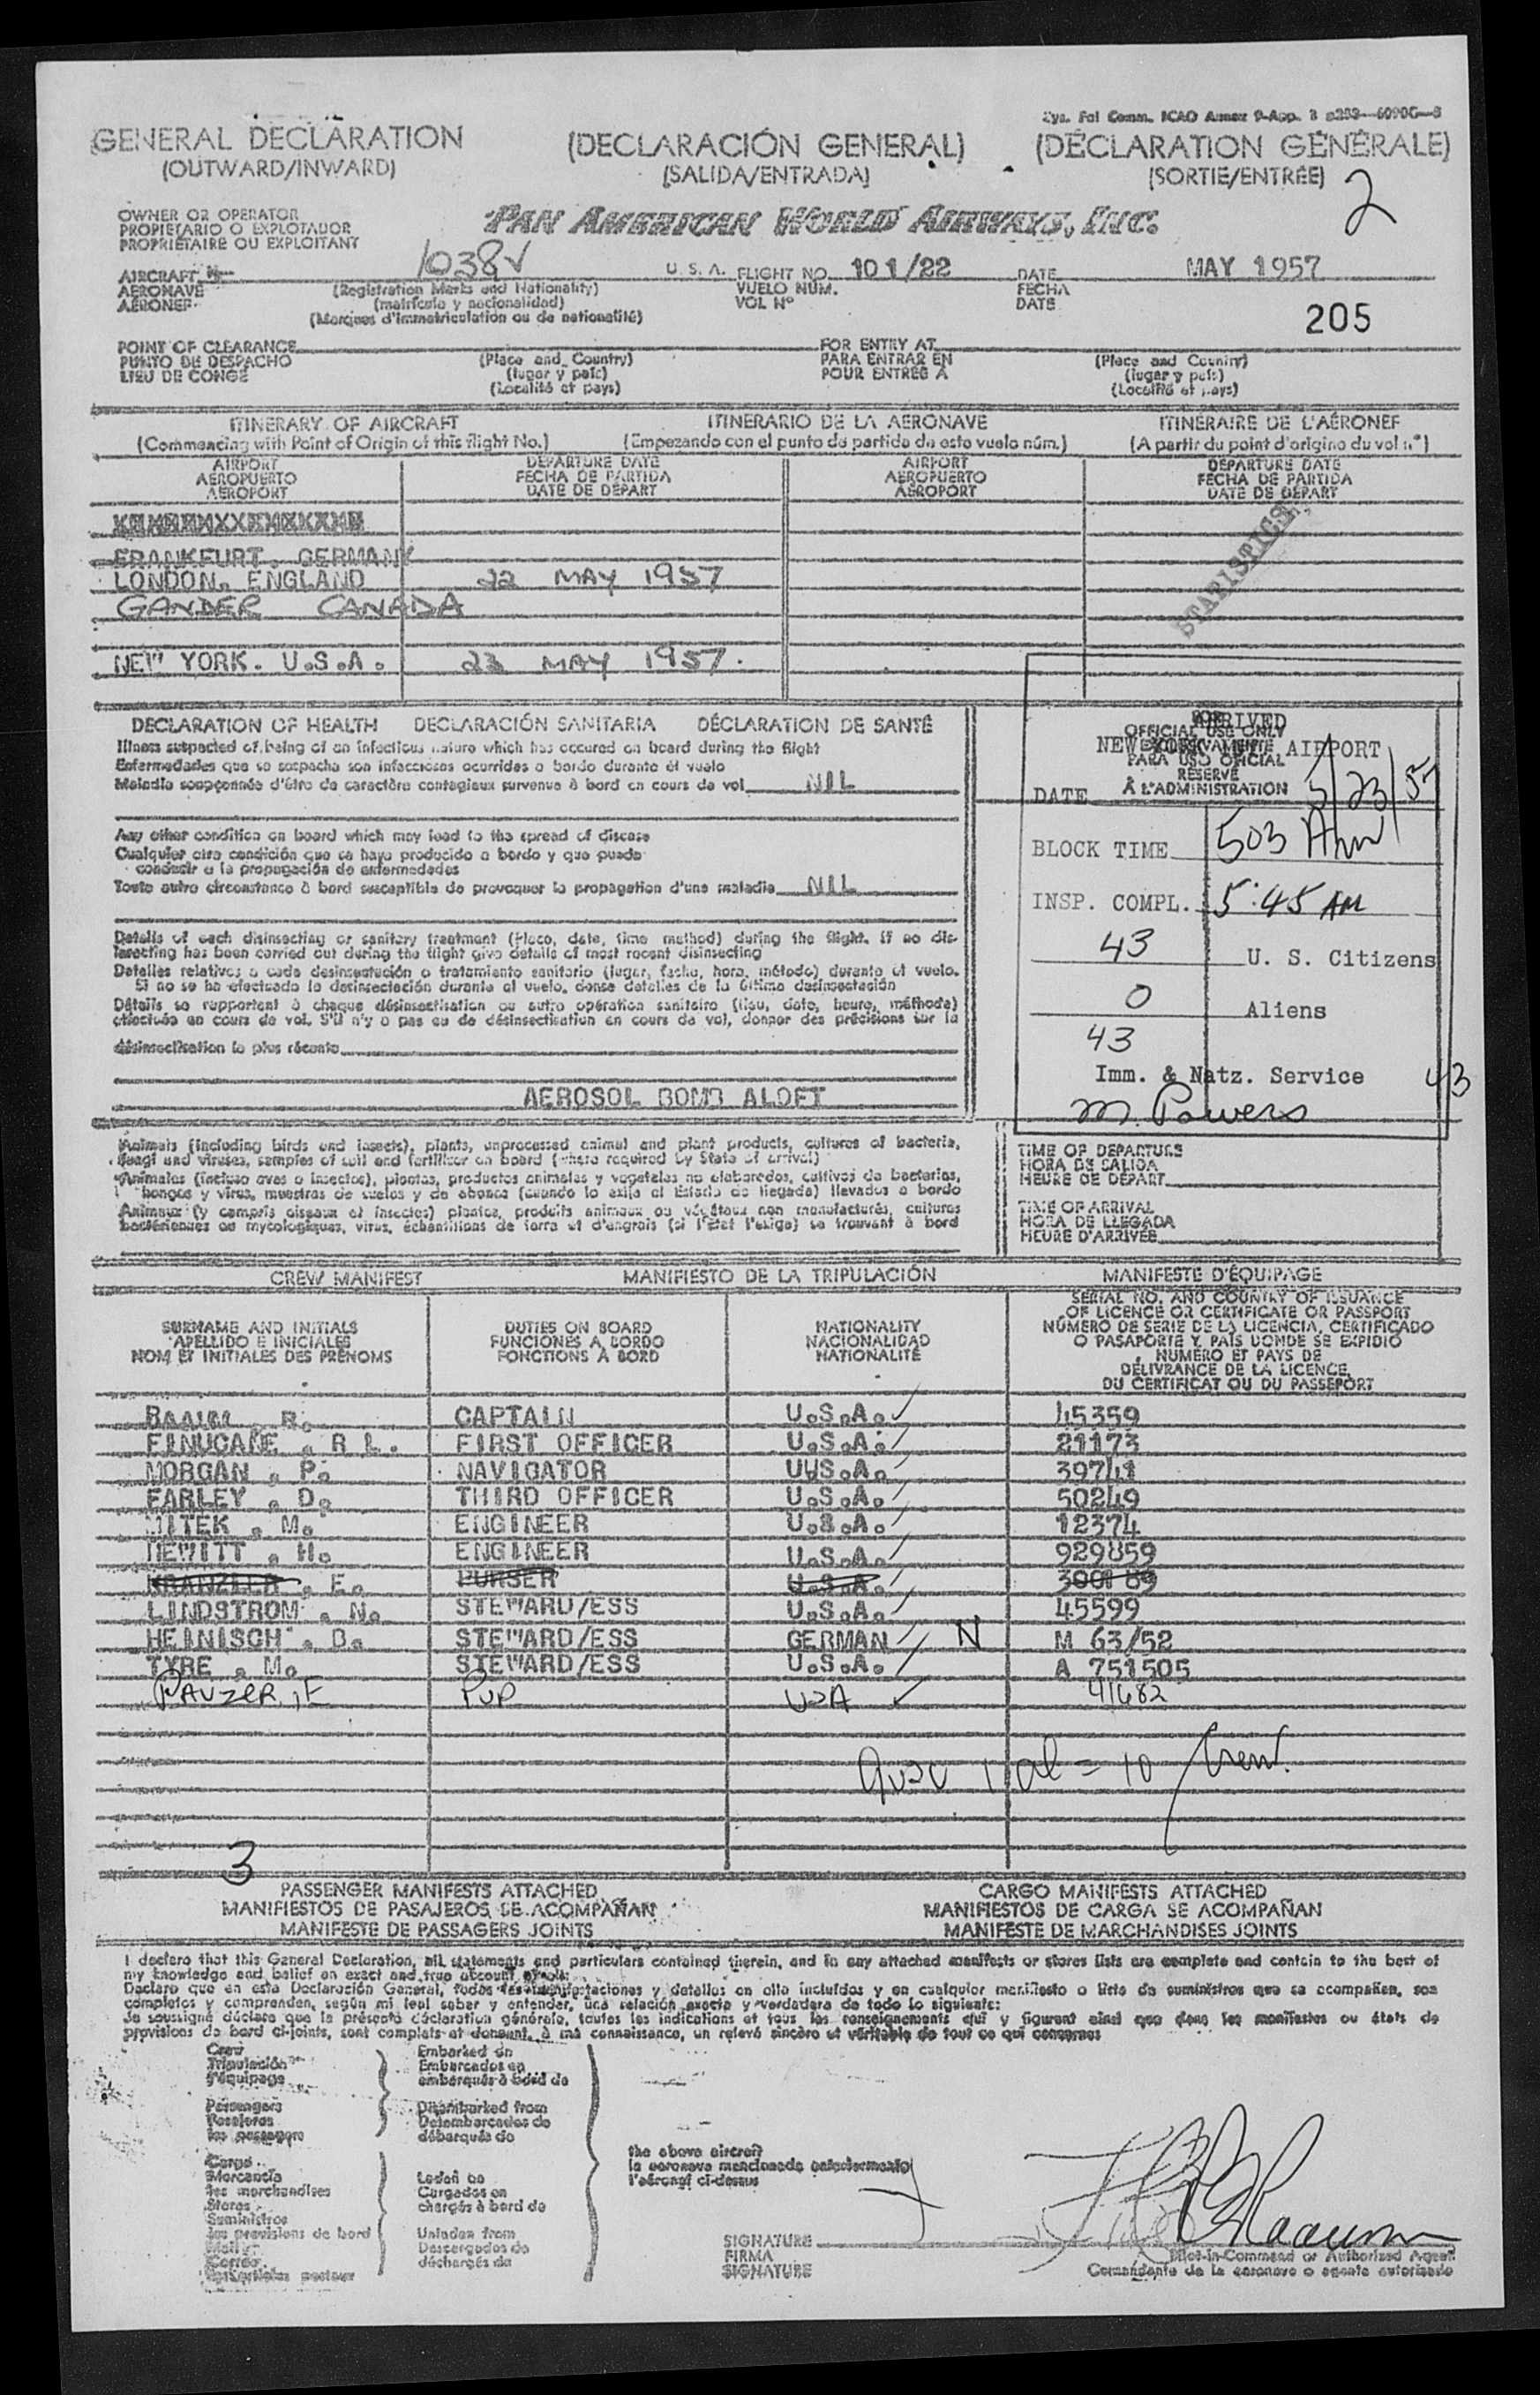 Sys. Fal Comm. ICAO Annex 9-App.
GENERAL DECLARATION (DECLARACIÓN GENERAL) (DÉCLARATION GÉNÉRALE)
(OUTWARD/INWARD) (SALIDA/ENTRADA) (SORTIE/ENTRÉE) 2
OWNER OR OPERATOR
PROPIETARIO O EXPLOTADOR
PROPRIÉTAIRE OU EXPLOITANT
PAN AMERICAN WORLD AIRWAYS, INC.
AIRCRAFT N 1038V U.S.A. FLIGHT NO. 101/22 DATE MAY 1957
AERONAVE (Registration Marks and Nationality) VUELO NÚM. FECHA
AÉRONEF (matrícula y nacionalidad) VOL Nº DATE
(Marques d'immatriculation ou de nationalité)
205
POINT OF CLEARANCE FOR ENTRY AT
PUNTO DE DESPACHO (Place and Country) PARA ENTRAR EN (Place and Country)
LIEU DE CONGÉ (lugar y país) POUR ENTRÉE À (lugar y país)
(Localité et pays) (Localité et pays)
ITINERARY OF AIRCRAFT ITINERARIO DE LA AERONAVE ITINÉRAIRE DE L'AÉRONEF
(Commencing with Point of Origin of this flight No.) (Empezando con el punto de partida de este vuelo núm.) (A partir du point d'origine du vol n°)
AIRPORT DEPARTURE DATE AIRPORT DEPARTURE DATE
AEROPUERTO FECHA DE PARTIDA AEROPUERTO FECHA DE PARTIDA
AÉROPORT DATE DE DÉPART AÉROPORT DATE DE DÉPART
FRANKFURT. GERMANY
LONDON. ENGLAND 22 MAY 1957
GANDER CANADA
NEW YORK. U.S.A. 23 MAY 1957.
STATISTICS
DECLARATION OF HEALTH DECLARACIÓN SANITARIA DÉCLARATION DE SANTÉ
Illness suspected of being of an infectious nature which has occured on board during the flight
Enfermedades que se sospecha son infecciosas ocurridas a bordo durante el vuelo
Maladie soupçonnée d'être de caractère contagieux survenue à bord en cours de vol NIL
Any other condition on board which may lead to the spread of disease
Cualquier otra condición que se haya producido a bordo y que puede
conducir a la propagación de enfermedades
Toute autre circonstance à bord susceptible de provoquer la propagation d'une maladie NIL
Details of each disinsecting or sanitary treatment (place, date, time method) during the flight. If no dis-
insecting has been carried out during the flight give details of most recent disinsecting
Detalles relativos a cada desinsectación o tratamiento sanitario (lugar, fecha, hora, método) durante el vuelo.
Si no se ha efectuado la desinsectación durante el vuelo, dense detalles de la última desinsectación
Détails se rapportant à chaque désinsectisation ou autre opération sanitaire (lieu, date, heure, méthode)
effectuée en cours de vol. S'il n'y a pas eu de désinsectisation en cours de vol, donner des précisions sur la
désinsectisation la plus récente
AEROSOL BOMB ALOFT
ARRIVED
OFFICIAL USE ONLY
NEW YORK AIRPORT
PARA USO OFICIAL
RÉSERVÉ
À L'ADMINISTRATION
DATE 5/23/57
BLOCK TIME 503 AM
INSP. COMPL. 5:45 AM
43 U. S. Citizens
0 Aliens
43
Imm. & Natz. Service 43
M. Powers
Animals (including birds and insects), plants, unprocessed animal and plant products, cultures of bacteria,
fungi and viruses, samples of soil and fertilizer on board (where required by State of arrival)
Animales (incluso aves o insectos), plantas, productos animales y vegetales no elaborados, cultivos de bacterias,
hongos y virus, muestras de suelos y de abonos (cuando lo exija el Estado de llegada) llevados a bordo
Animaux (y compris oiseaux et insectes) plantes, produits animaux ou végétaux non manufacturés, cultures
bactériennes ou mycologiques, virus, échantillons de terre et d'engrais (si l'État l'exige) se trouvant à bord
TIME OF DEPARTURE
HORA DE SALIDA
HEURE DE DÉPART
TIME OF ARRIVAL
HORA DE LLEGADA
HEURE D'ARRIVÉE
CREW MANIFEST MANIFIESTO DE LA TRIPULACIÓN MANIFESTE D'ÉQUIPAGE
SURNAME AND INITIALS
APELLIDO E INICIALES
NOM ET INITIALES DES PRÉNOMS
DUTIES ON BOARD
FUNCIONES A BORDO
FONCTIONS À BORD
NATIONALITY
NACIONALIDAD
NATIONALITÉ
SERIAL NO. AND COUNTRY OF ISSUANCE
OF LICENCE OR CERTIFICATE OR PASSPORT
NÚMERO DE SERIE DE LA LICENCIA, CERTIFICADO
O PASAPORTE Y PAÍS DONDE SE EXPIDIÓ
NUMÉRO ET PAYS DE
DÉLIVRANCE DE LA LICENCE,
DU CERTIFICAT OU DU PASSEPORT
BAAUM, R. CAPTAIN U.S.A. 45359
FINUCANE, R L. FIRST OFFICER U.S.A. 21173
MORGAN, P. NAVIGATOR UUS.A. 39741
FARLEY, D. THIRD OFFICER U.S.A. 50249
MITEK, M. ENGINEER U.S.A. 12374
HEWITT, H. ENGINEER U.S.A. 929859
E. PURSER U.S.A. 3001 89
LINDSTROM, N. STEWARD/ESS U.S.A. 45599
HEINISCH, B. STEWARD/ESS GERMAN N M 63/52
TYRE, M. STEWARD/ESS U.S.A. A 751505
PAUZER, E PUP USA 41682
9 USC 1 al = 10 Crew.
3
PASSENGER MANIFESTS ATTACHED CARGO MANIFESTS ATTACHED
MANIFIESTOS DE PASAJEROS SE ACOMPAÑAN MANIFIESTOS DE CARGA SE ACOMPAÑAN
MANIFESTE DE PASSAGERS JOINTS MANIFESTE DE MARCHANDISES JOINTS
I declare that this General Declaration, all statements and particulars contained therein, and in any attached manifests or stores lists are complete and contain to the best of
my knowledge and belief an exact and true account of all:
Declaro que en esta Declaración General, todas las manifestaciones y detalles en ella incluidos y en cualquier manifiesto o lista de suministros que se acompañen, son
completos y comprenden, según mi leal saber y entender, una relación exacta y verdadera de todo lo siguiente:
Je soussigné déclare que la présente déclaration générale, toutes les indications et tous les renseignements qui y figurent ainsi que dans les manifestes ou états de
provisions de bord ci-joints, sont complets et donnent, à ma connaissance, un relevé sincère et véritable de tout ce qui concerne
Crew
Tripulación
l'équipage
Passengers
Pasajeros
les passagers
Embarked on
Embarcados en
embarqués à bord de
Disembarked from
Desembarcados de
débarqués de
Cargo
Mercancía
les marchandises
Stores
Suministros
les provisions de bord
Mail
Correo
Laden on
Cargados en
chargés à bord de
Unladen from
Descargados de
déchargés de
the above aircraft
la aeronave mencionada anteriormente
l'aéronef ci-dessus
SIGNATURE
FIRMA
SIGNATURE
Pilot-in-Command or Authorized Agent
Comandante de la aeronave o agente autorizado